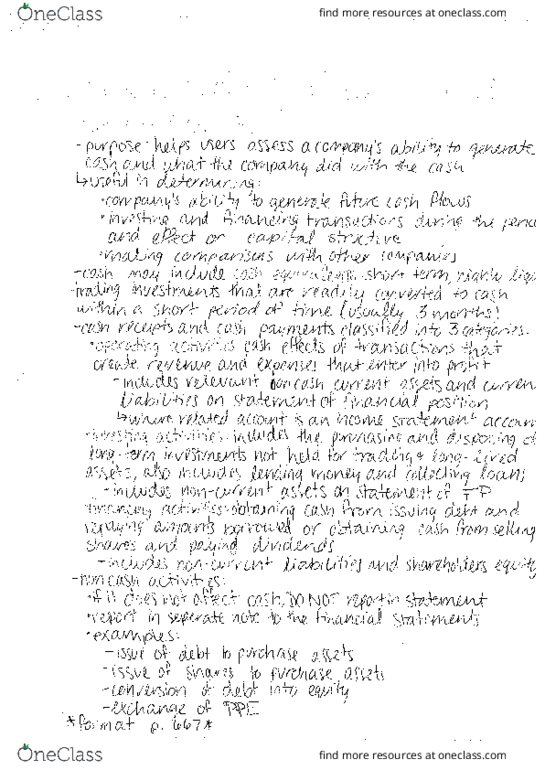 OneClass
find more resources at oneclass.com
- purpose: helps users assess a company's ability to generate
cash and what the company did with the cash
↳ useful in determining:
• company's ability to generate future cash flows
• investing and financing transactions during the
and effect on capital structure
• making comparisons with other companies
- cash may include cash equivalents: short term, highly
trading investments that are readily converted to cash
within a short period of time (usually 3 months)
- cash receipts and cash payments classified into 3 categories:
• operating activities: cash effects of transactions that
create revenue and expenses that enter into profit
- includes relevant noncash current assets and
liabilities on statement of financial position
↳ where related account is an income statement
investing activities: includes the purchasing and disposing of
long-term investments not held for trading & long-lived
assets, also includes lending money and collecting loans
- includes non-current assets on statement of FP
financing activities: obtaining cash from issuing debt and
repaying amounts borrowed or obtaining cash from selling
shares and paying dividends
- includes non-current liabilities and shareholders equity
- noncash activities:
• if it does not affect cash, DO NOT report in statement
• report in seperate note to the financial statements
• examples:
- issue of debt to purchase assets
- issue of shares to purchase assets
- conversion of debt into equity
- exchange of PPE
*format p. 667*
OneClass
find more resources at oneclass.com